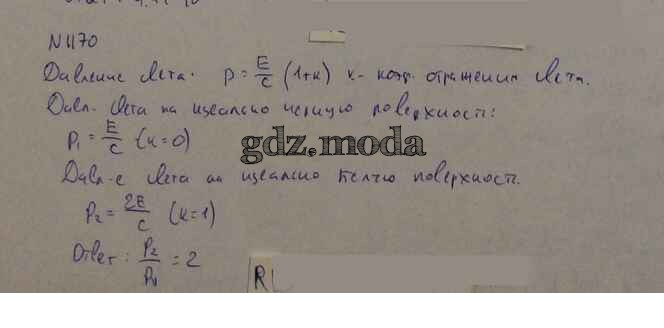 N 1170
Давление света. p = E/c (1+к) к - коэф. отражения света.
Давл. света на идеально черную поверхность:
P₁ = E/c (к=0)
gdz.moda
Давл-е света на идеально белую поверхность.
P₂ = 2E/c (к=1)
Ответ: P₂/P₁ = 2
R